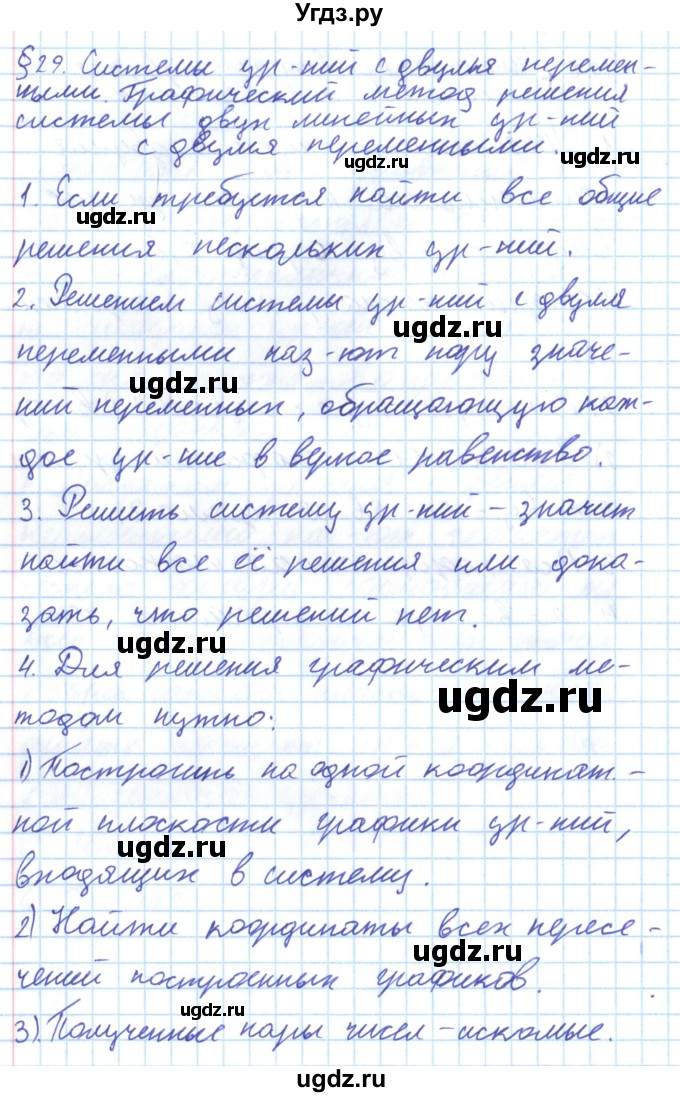 Угдз.ру
§29. Системы ур-ний с двумя перемен-
ными. Графический метод решения
системы двух линейных ур-ний
с двумя переменными.
ugdz.ru
ugdz.ru
1. Если требуется найти все общие
решения нескольких ур-ний.
2. Решением системы ур-ний с двумя
ugdz.ru
переменными наз-ют пару значе-
ugdz.ru
ний переменных, обращающую каж-
дое ур-ние в верное равенство.
3. Решить систему ур-ний – значит
найти все её решения или дока-
зать, что решений нет.
ugdz.ru
4. Для решения графическим ме-
ugdz.ru
тодом нужно:
1) Построить на одной координат-
ной плоскости графики ур-ний,
ugdz.ru
входящих в систему.
2) Найти координаты всех пересе-
ugdz.ru
чений построенных графиков.
ugdz.ru
3). Полученные пары чисел – искомые.
ugdz.ru